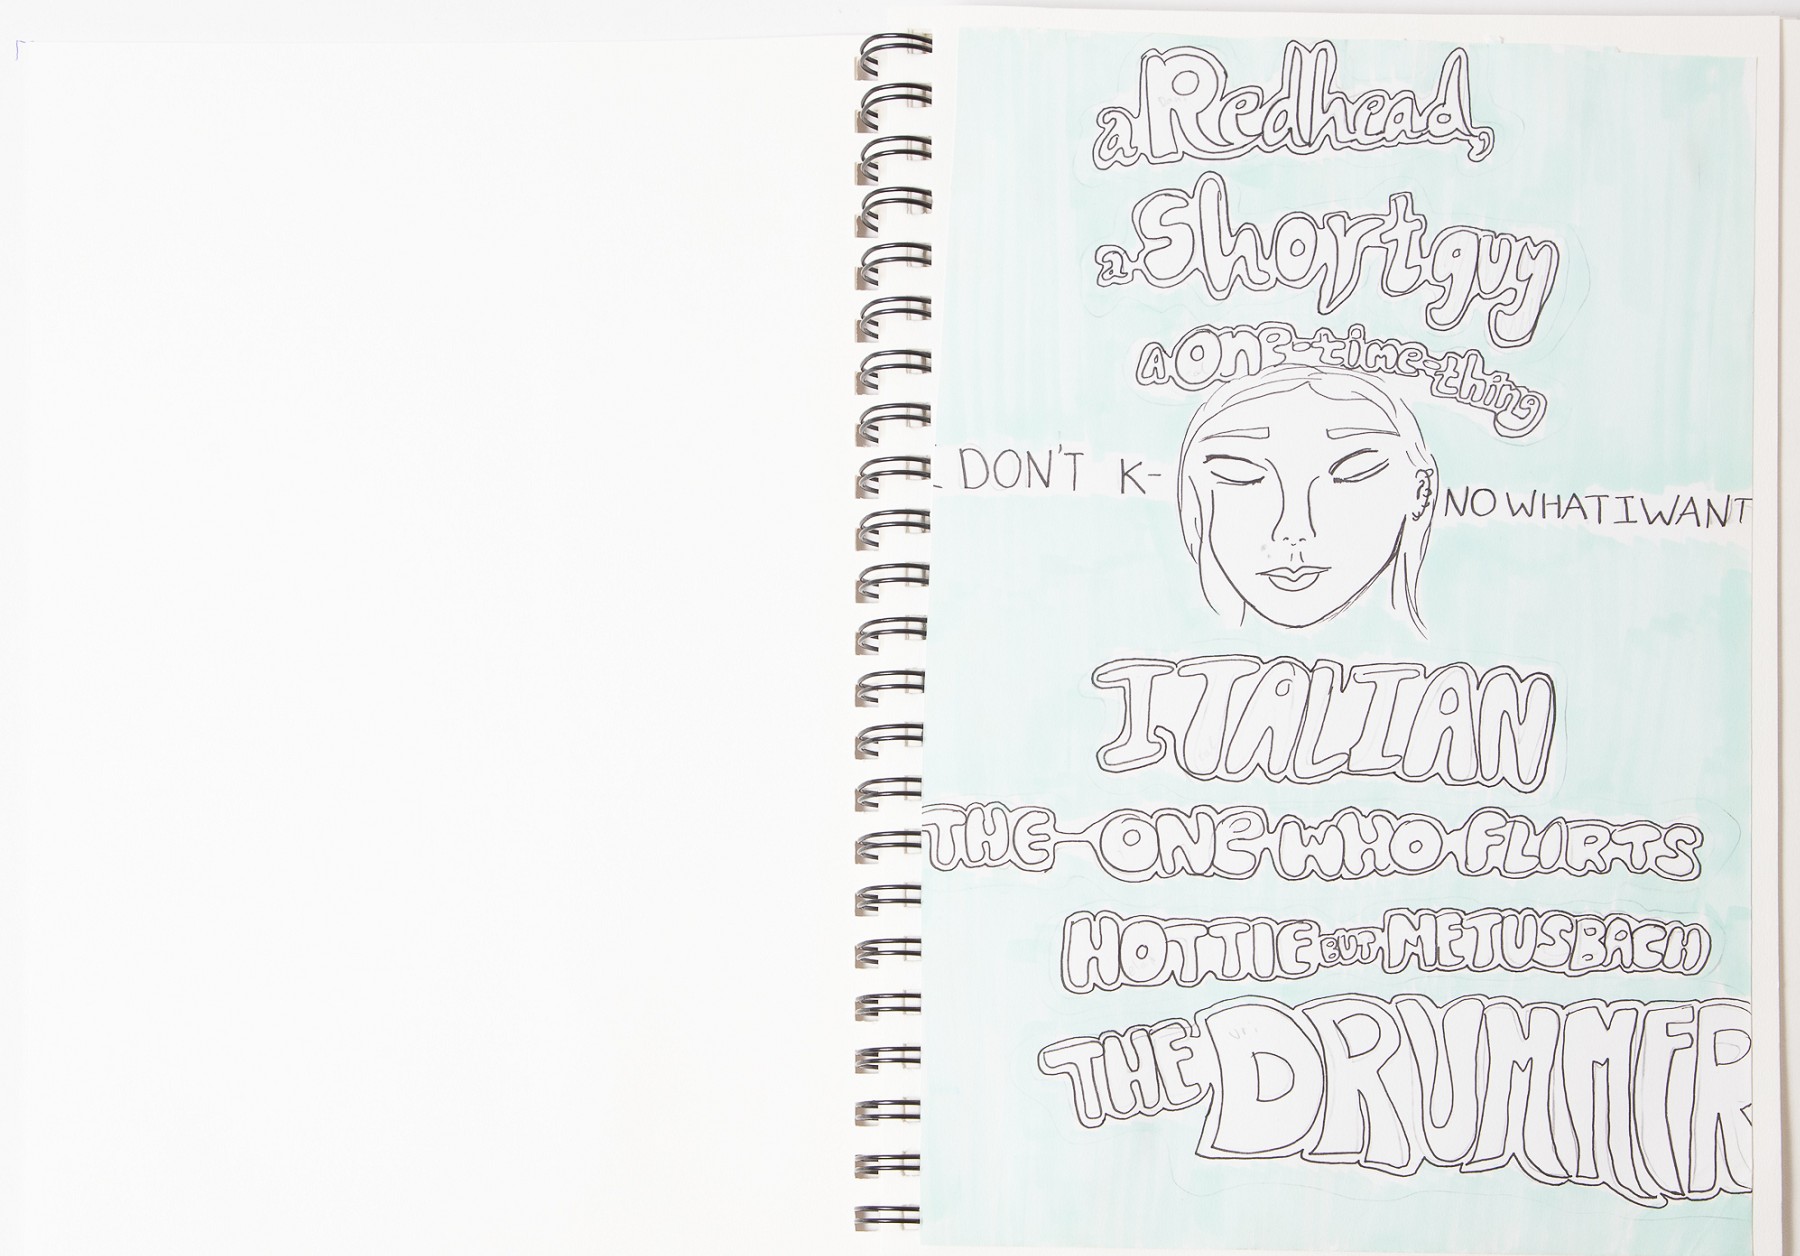 a Redhead,
a Short guy
A one-time-thing
I DON'T K-NOW WHAT I WANT
ITALIAN
THE ONE WHO FLIRTS
HOTTIE BUT METUSBACH
THE DRUMMER